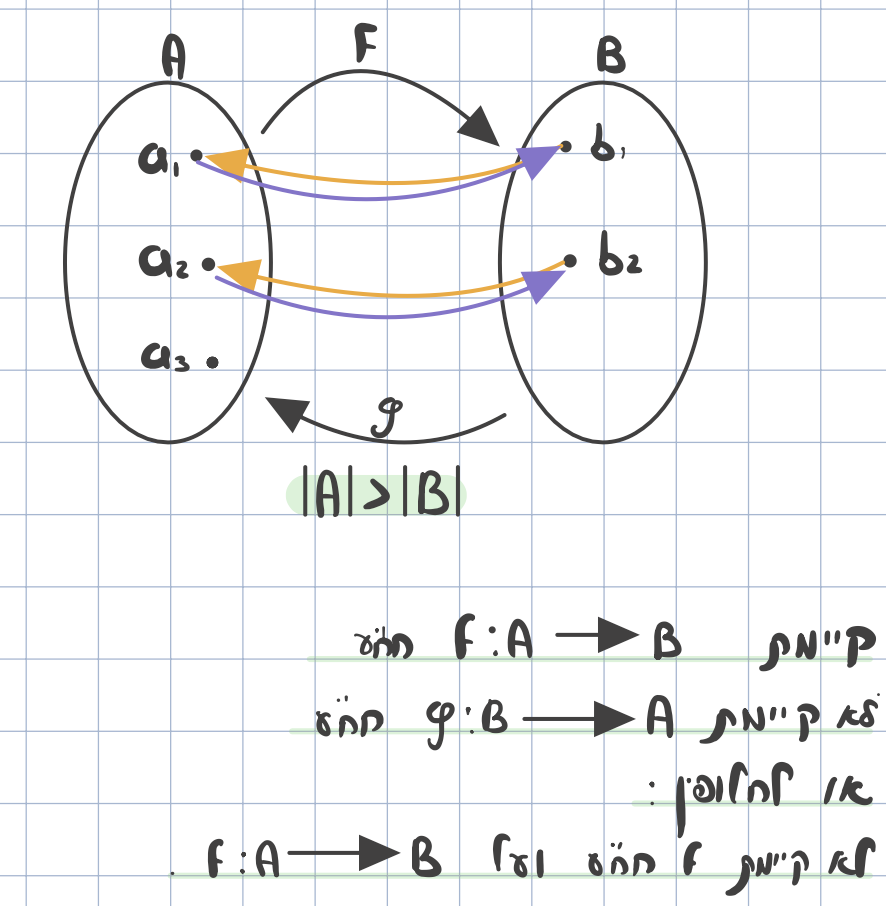 A F B
a₁ b₁
a₂ b₂
a₃
g
|A| > |B|
קיימת F:A → B חח"ע
לא קיימת g:B → A חח"ע
או לחלופין :
לא קיימת f חח"ע ועל F:A → B .